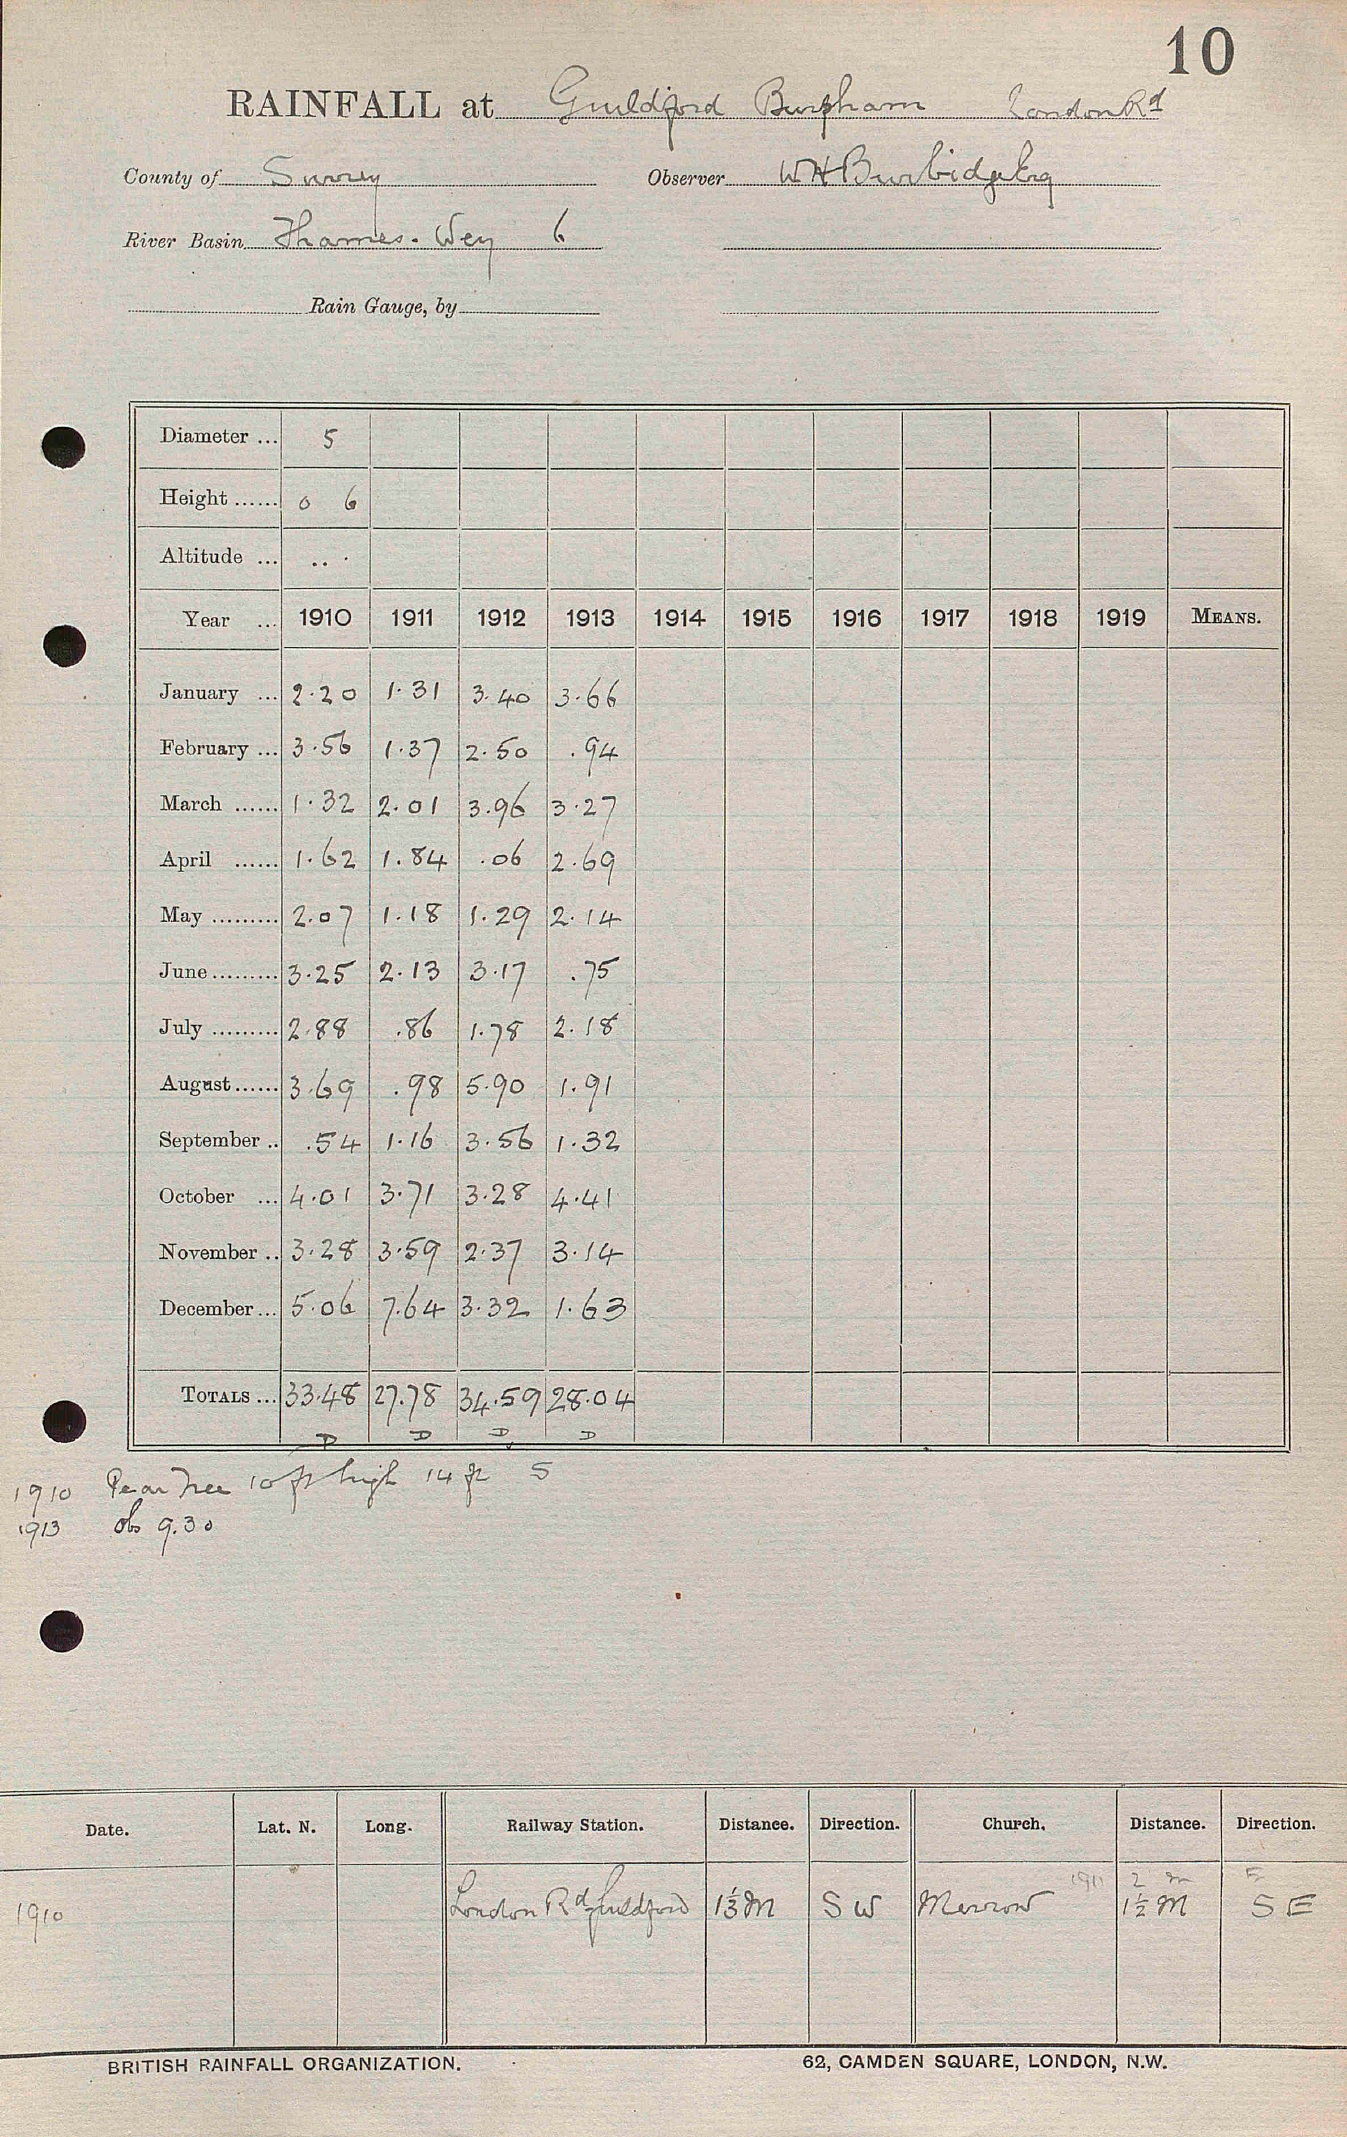 10
RAINFALL at Guildford Burpham London Rd
County of Surrey Observer W H Burbidge Esq
River Basin Thames. Wey 6
Rain Gauge, by
Diameter ... 5
Height ...... 0 6
Altitude ... .. .
Year ... 1910 1911 1912 1913 1914 1915 1916 1917 1918 1919 MEANS.
January ... 2.20 1.31 3.40 3.66
February ... 3.56 1.37 2.50 .94
March ...... 1.32 2.01 3.96 3.27
April ...... 1.62 1.84 .06 2.69
May ......... 2.07 1.18 1.29 2.14
June ......... 3.25 2.13 3.17 .75
July ......... 2.88 .86 1.78 2.18
August ...... 3.69 .98 5.90 1.91
September .. .54 1.16 3.56 1.32
October ... 4.01 3.71 3.28 4.41
November .. 3.28 3.59 2.37 3.14
December ... 5.06 7.64 3.32 1.63
TOTALS ... 33.48 27.78 34.59 28.04
D D D D
1910 Pear Tree 10 ft high 14 ft S
1913 obs 9.30
Date. Lat. N. Long. Railway Station. Distance. Direction. Church. Distance. Direction.
1911 2 m E
1910 London Rd Guildford 1⅓ M S W Merrow 1½ M S E
BRITISH RAINFALL ORGANIZATION. 62, CAMDEN SQUARE, LONDON, N.W.